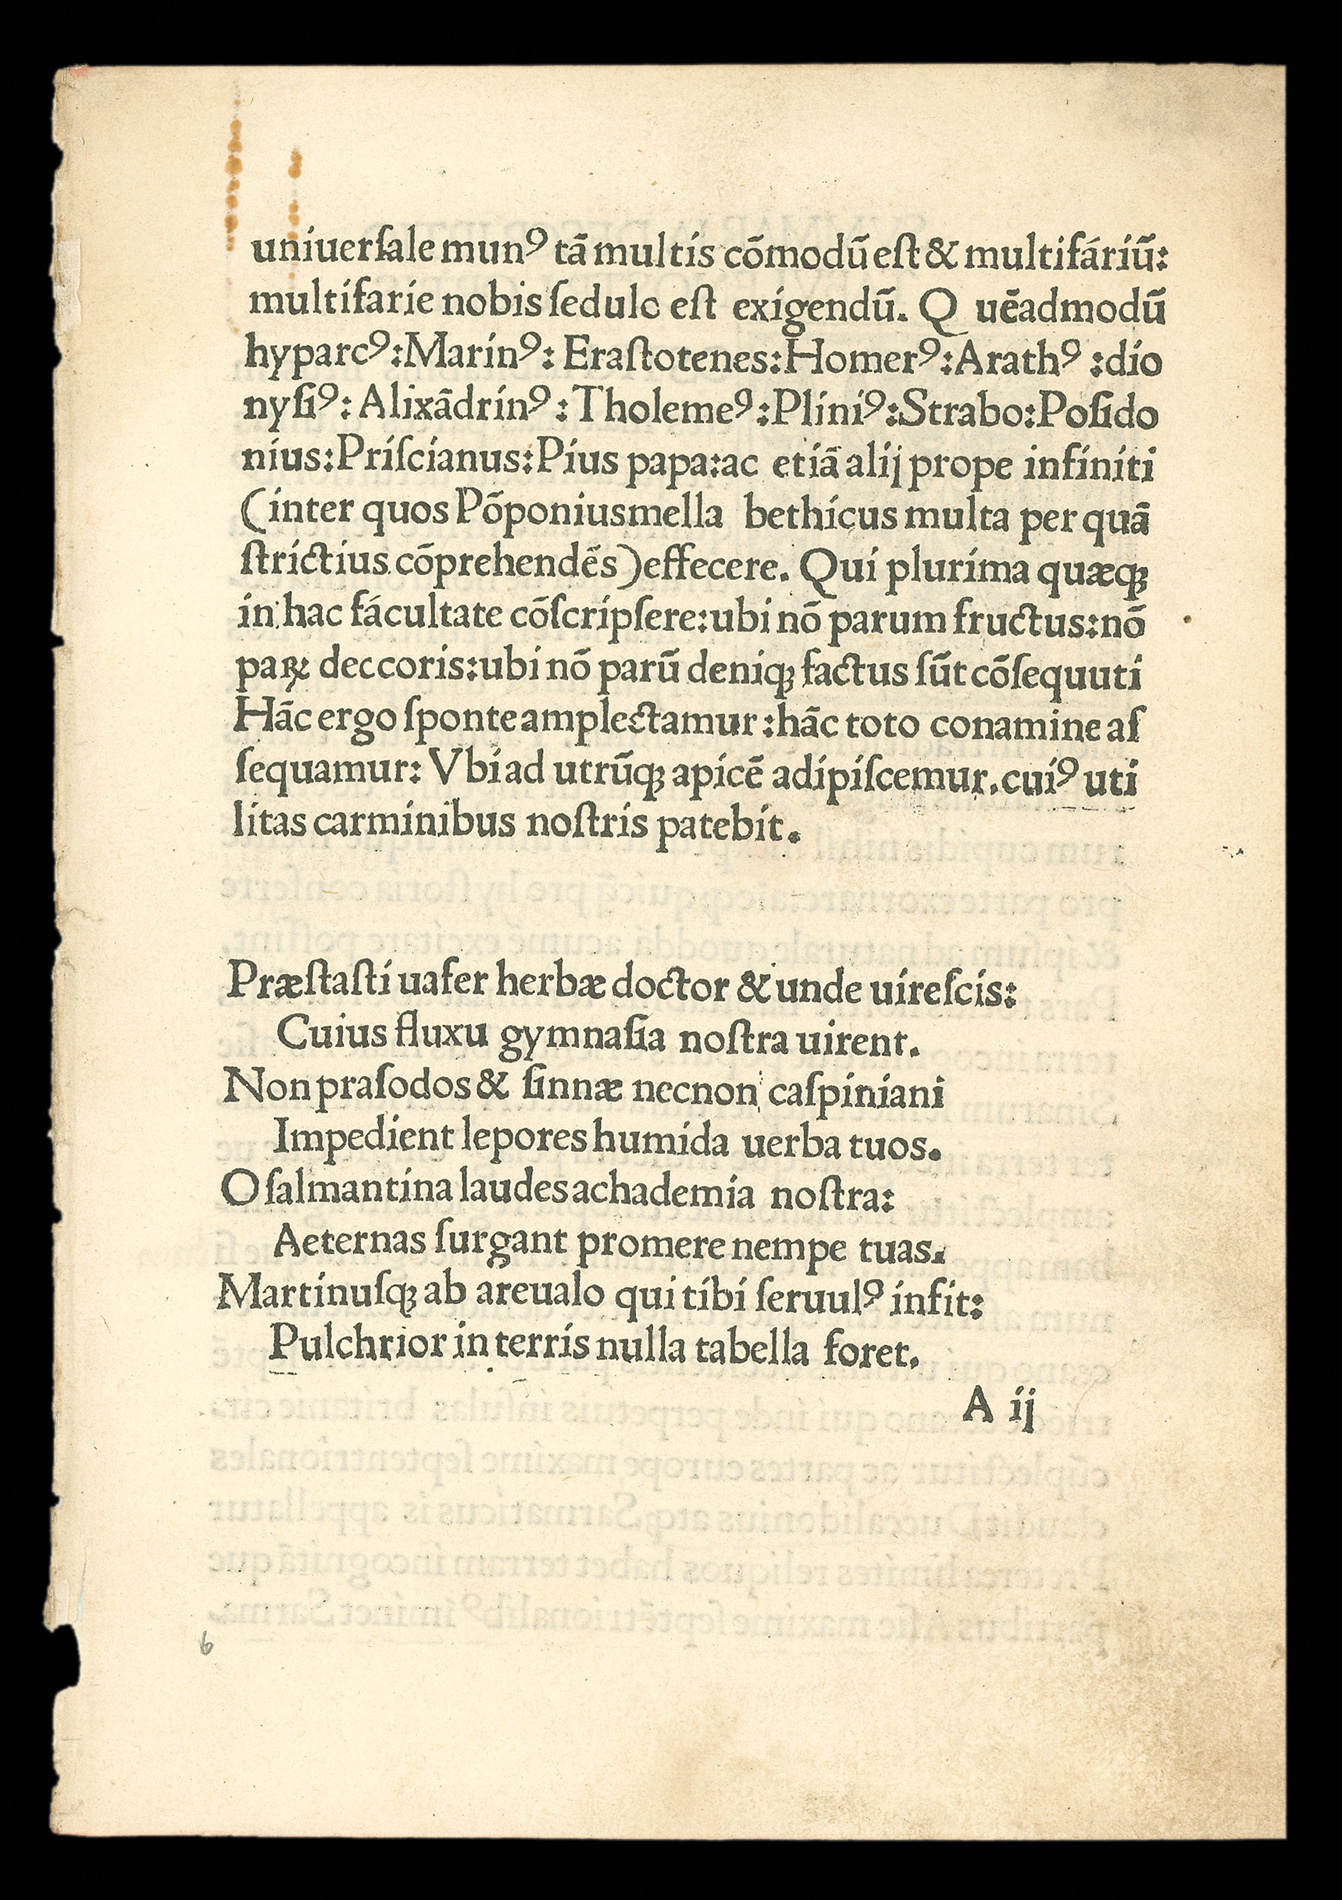 uniuerſale munꝰ tā multis cōmodū eſt & multifáriū:
multifarie nobis ſedulc eſt exigendū. Q uēadmodū
hyparcꝰ:Marinꝰ: Eraſtotenes:Homerꝰ:Arathꝰ :dio
nyſiꝰ: Alixādrinꝰ:Tholemeꝰ:Pliniꝰ:Strabo:Poſido
nius:Priſcianus:Pius papa:ac etiā alij prope infiniti
(inter quos Pōponiusmella bethicus multa per quā
ſtrictius cōprehendēs)effecere. Qui plurima quæqꝫ
in hac fácultate cōſcripſere:ubi nō parum fructus:nō
paꝝ deccoris:ubi nō parū deniqꝫ factus ſūt cōſequuti
Hāc ergo ſponte amplectamur:hāc toto conamine aſ
ſequamur: Vbi ad utrūqꝫ apicē adipiſcemur.cuiꝰ uti
litas carminibus noſtris patebit.
Præſtaſti uafer herbæ doctor & unde uireſcis:
Cuius fluxu gymnaſia noſtra uirent.
Non praſodos & ſinnæ necnon caſpiniani
Impedient lepores humida uerba tuos.
O ſalmantina laudes achademia noſtra:
Aeternas ſurgant promere nempe tuas.
Martinuſqꝫ ab areualo qui tibi ſeruulꝰ infit:
Pulchrior in terris nulla tabella foret.
A ij
6